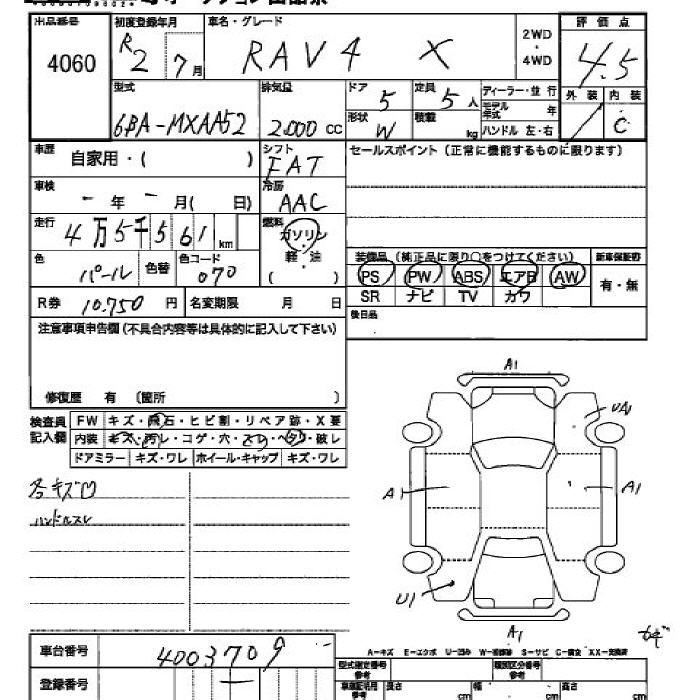 出品番号 初度登録年月 車名・グレード 2WD・4WD 評価点
4060 R2 7月 RAV4 X 4.5
型式 排気量 ドア 5 定員 5人 ディーラー・並行 外装 内装
6BA-MXAA52 2,000cc 形状 W 積載 kg モデル年式 年 ハンドル 左・右 C
車歴 自家用・( ) シフト FAT セールスポイント(正常に機能するものに限ります)
車検 - 年 - 月( 日) 冷房 AAC
走行 4万5千561km 燃料 ガソリン・軽・油 ( )
色 パール 色替 色コード 070 装備品(純正品に限り○をつけてください) 新車保証書
PS PW ABS エアB AW 有・無
SR ナビ TV カワ
R券 10,750円 名変期限 月 日 後日品
注意事項申告欄(不具合内容等は具体的に記入して下さい)
修復歴 有 〔箇所 〕
検査員記入欄 FW キズ・飛石・ヒビ割・リペア跡・X要
内装 キズ・汚レ・コゲ・穴・スレ・ヘタリ・破レ
ドアミラー キズ・ワレ ホイール・キャップ キズ・ワレ
ハンドルスレ
A1
UA1
A1
A1
U1
A1
A-キズ E-エクボ U-凹み W-補修跡 S-サビ C-腐食 XX-交換済
車台番号 4003709
登録番号
型式指定番号 参考 類別区分番号 参考
車庫証明用 参考 長さ cm 幅 cm 高さ cm